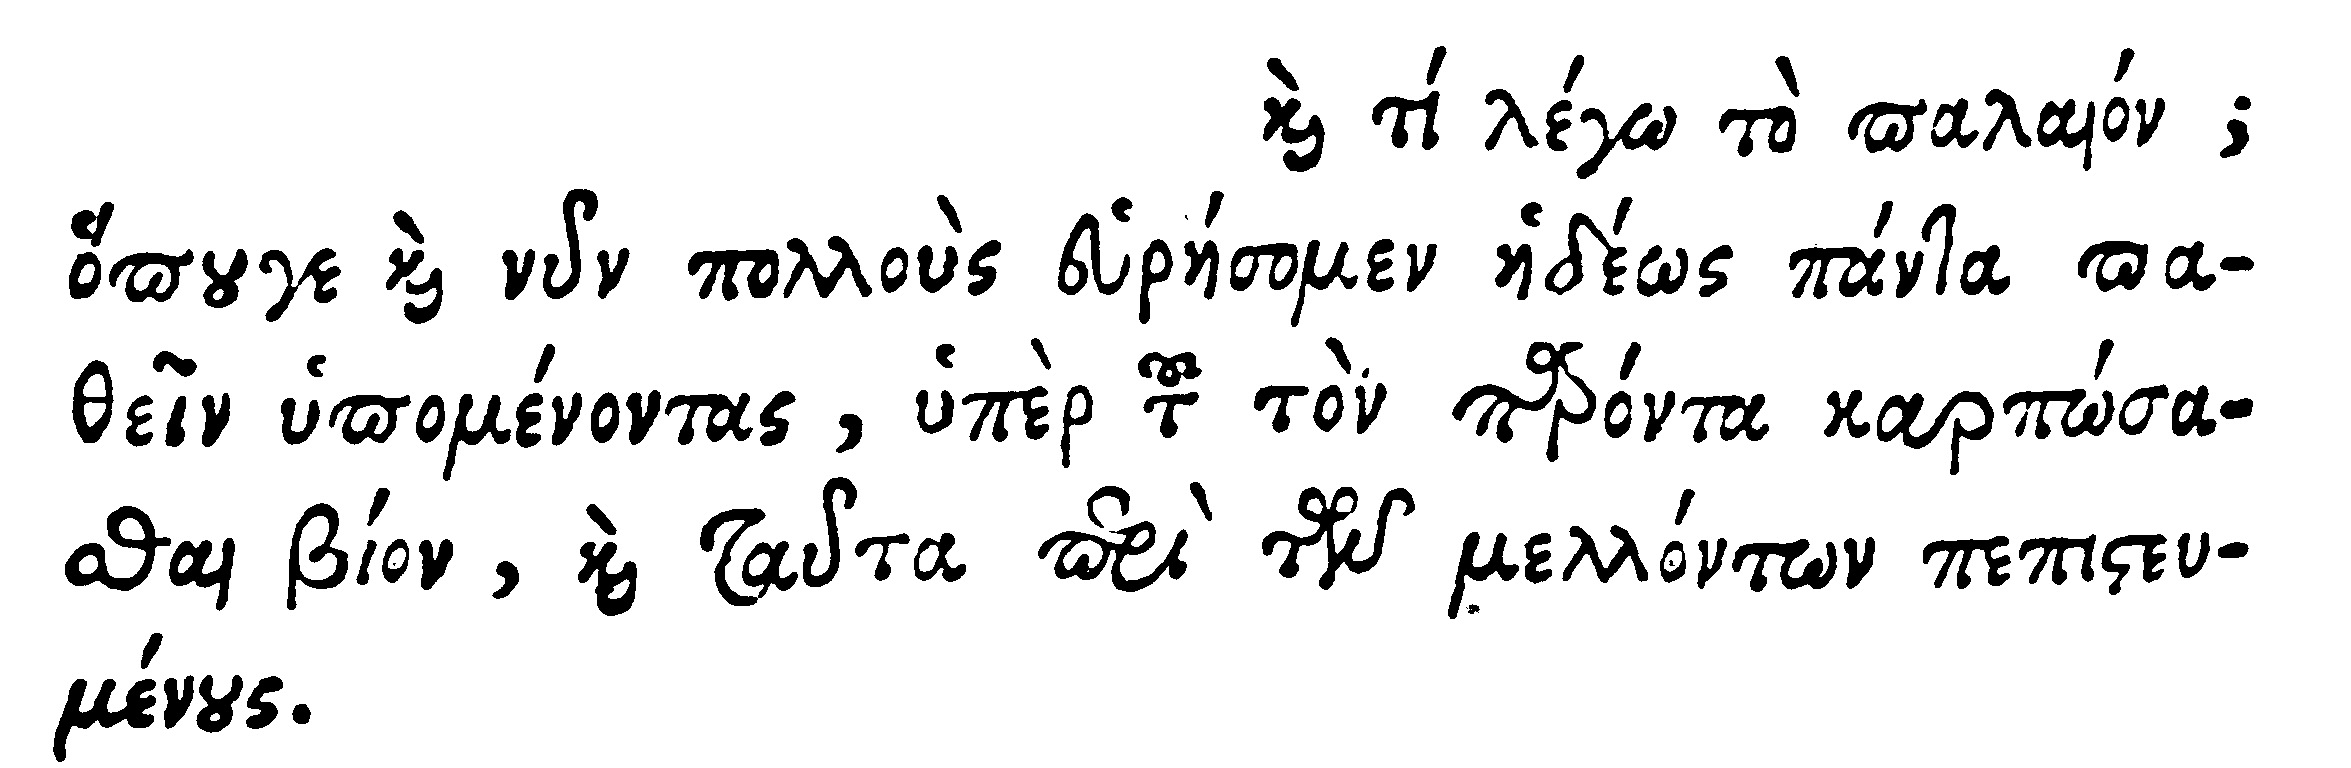 καὶ τί λέγω τὸ παλαιόν ;
ὅπουγε καὶ νῦν πολλοὺς εὑρήσομεν ἡδέως πάντα πα-
θεῖν ὑπομένοντας, ὑπὲρ τοῦ τὸν παρόντα καρπώσα-
σθαι βίον, καὶ ταῦτα περὶ τῶν μελλόντων πεπιστευ-
μένους.